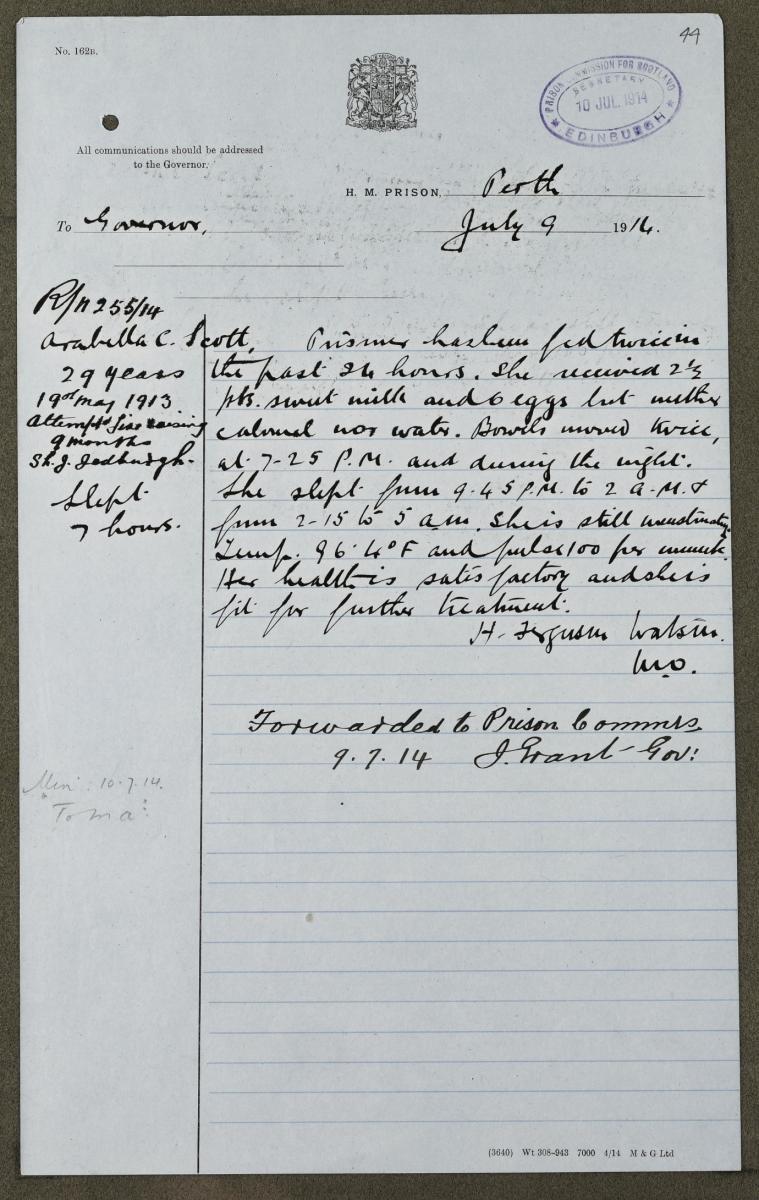 44
No. 162B.
PRISON COMMISSION FOR SCOTLAND
SECRETARY
10 JUL. 1914
EDINBURGH
All communications should be addressed
to the Governor.
H. M. PRISON, Perth
To Governor,
July 9 1914.
R/N 255/14
Arabella C. Scott,
29 years
19th May 1913
Attempt Fire raising
9 months
Sh. J. Jedburgh.
Slept
7 hours.
Prisoner has been fed twice in
the past 24 hours. She received 2½
pts. sweet milk and 6 eggs but neither
calomel nor water. Bowels moved twice,
at 7-25 P.M. and during the night.
She slept from 9-45 P.M. to 2 A.M. &
from 2-15 to 5 a.m. She is still menstruating.
Temp. 96.4°F and pulse 100 per minute.
Her health is satisfactory and she is
fit for further treatment.
H. Ferguson Watson.
M.O.
Forwarded to Prison Commrs
9.7.14 J. Grant Gov:
Min: 10.7.14.
(3640) Wt 308-943 7000 4/14 M & G Ltd